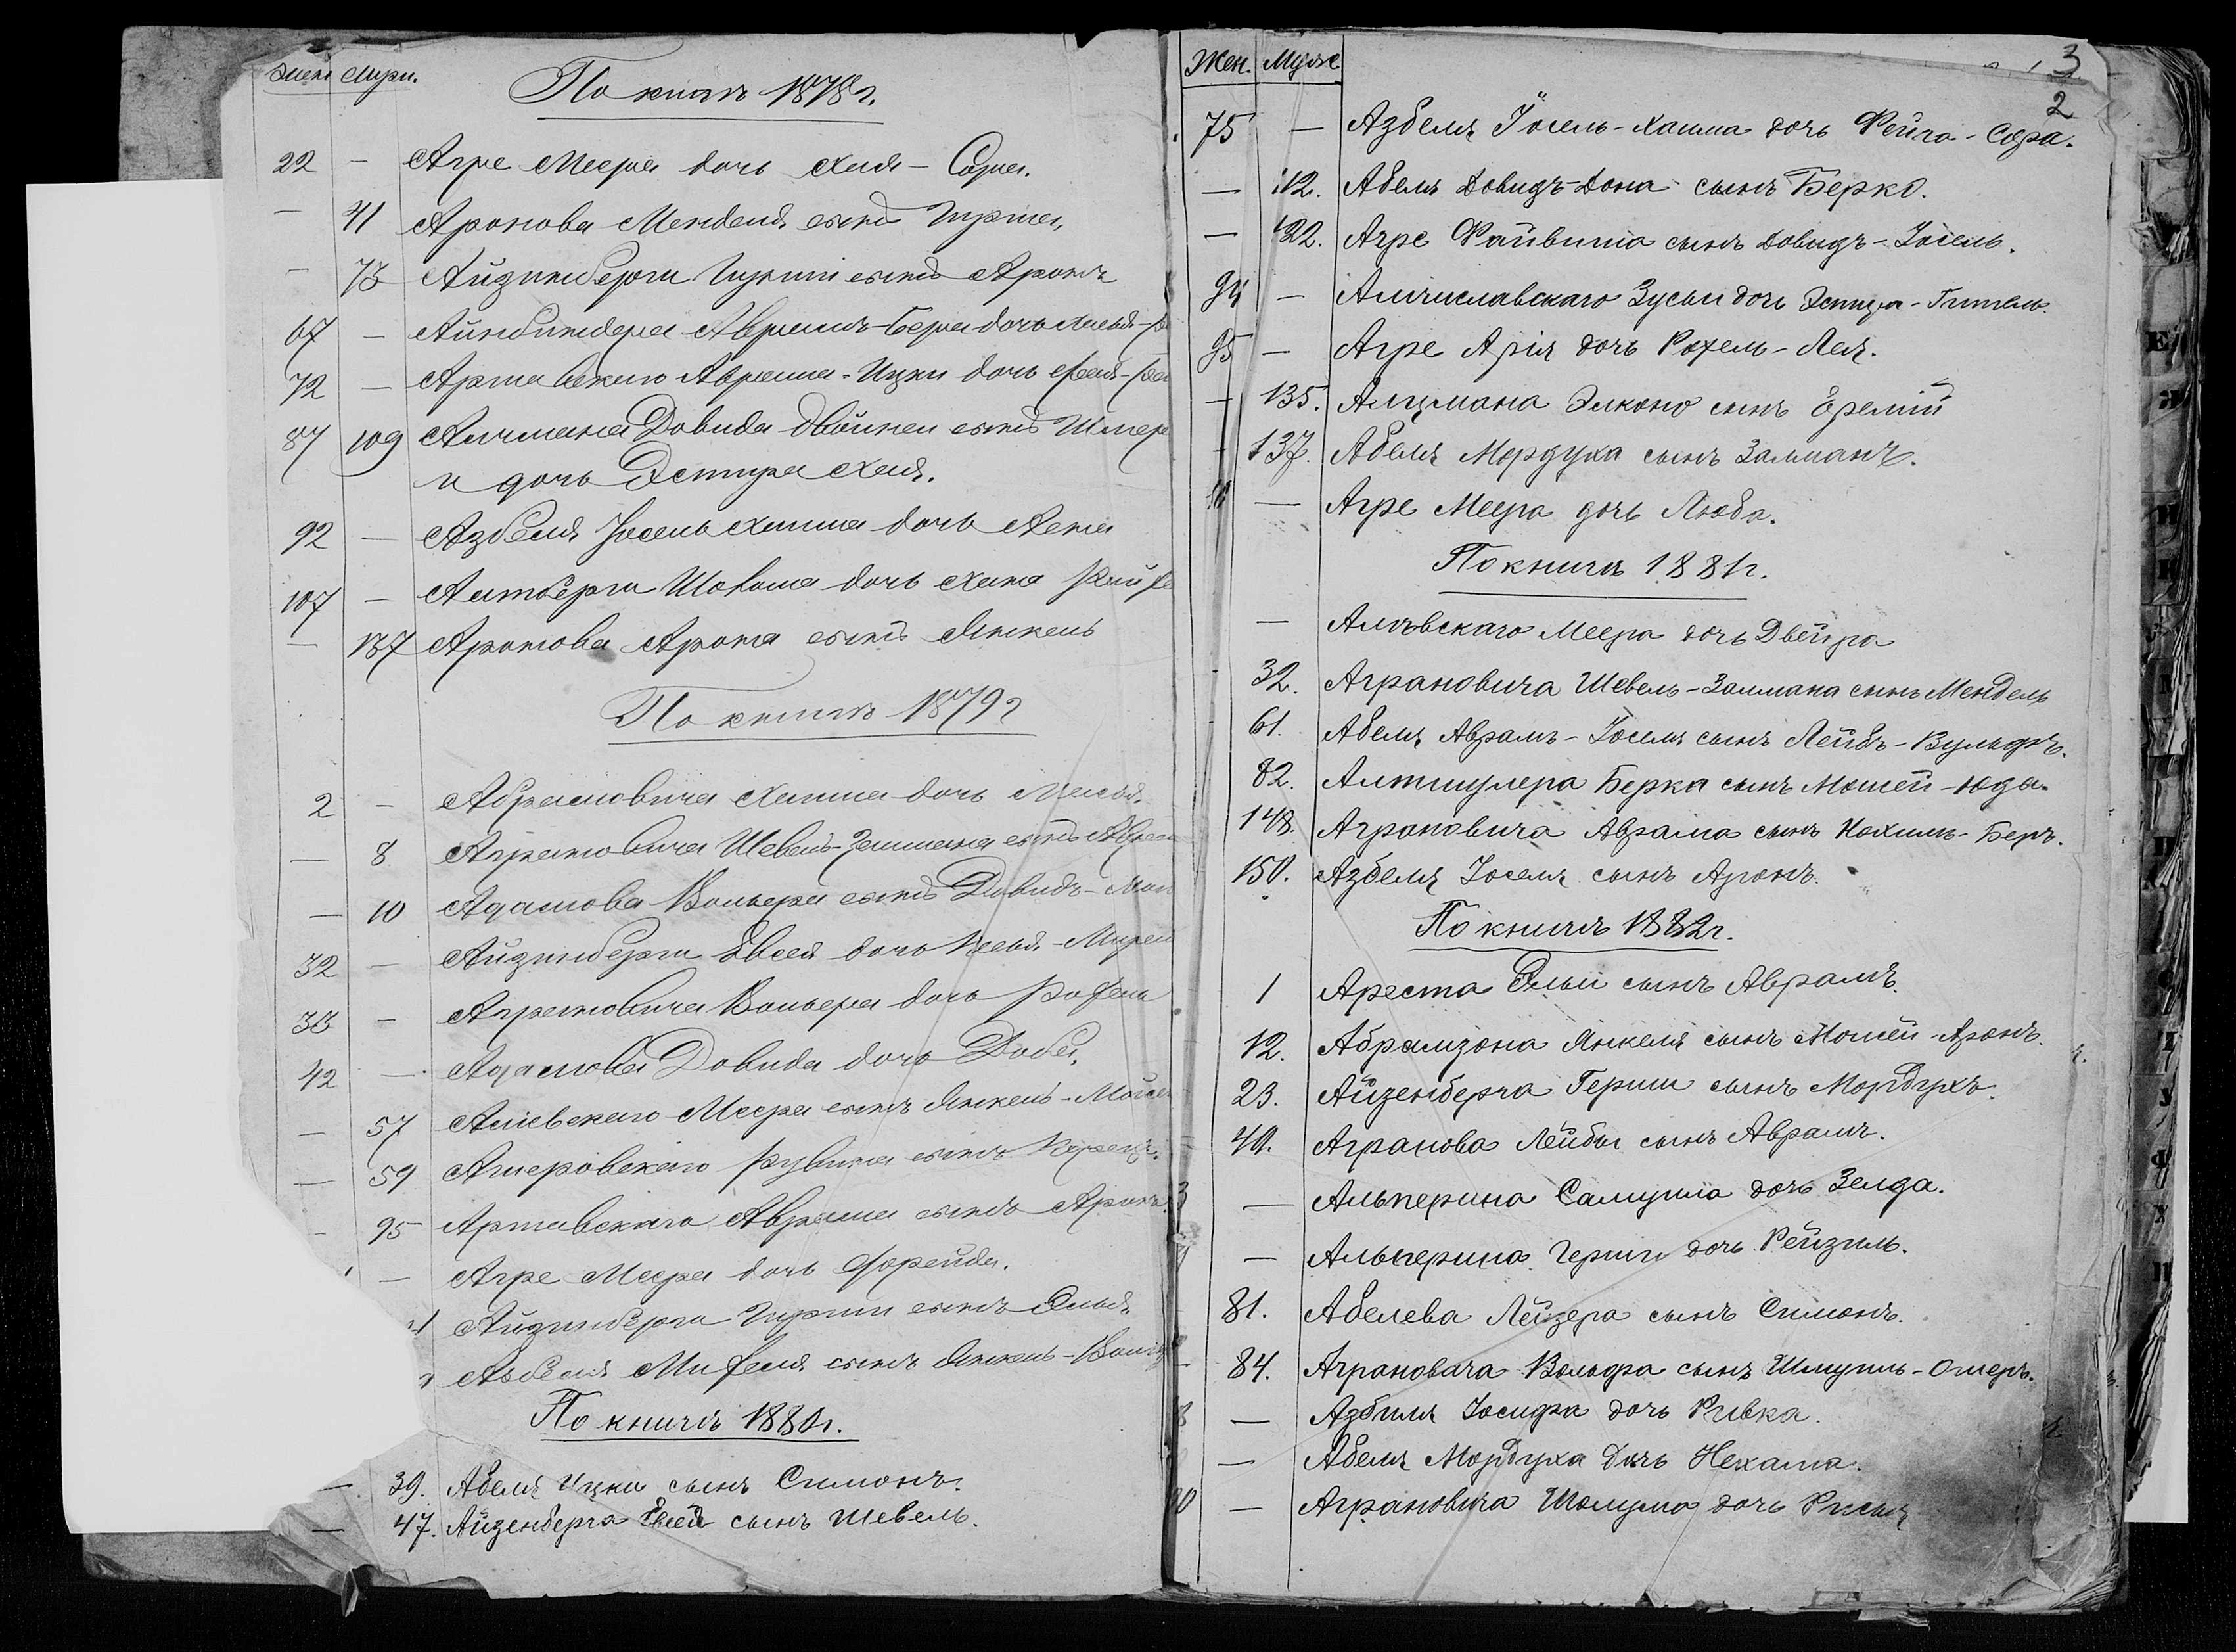 Жен. Мужч.
По книгѣ 1878 г.
22 — Агре Меера дочь Хая-Сора.
— 41 Аронова Менделя сынъ Гирша.
— 73 Айзинберга Гирши сынъ Аронъ
67 — Айнбиндера Аврамъ-Бера дочь Хася-
72 — Аршавскаго Аврама-Ицки дочь
87 109 Альтмана Довида двойни сынъ Шмер
и дочь Эстира Хая.
92 — Азбеля Іосель Хаима дочь
107 — Альтберга Шолома дочь Хана
— 137 Аронова Арона сынъ Янкель
По книгѣ 1879 г
2 — Абрамовича Хаима дочь Масья.
— 8 Аграновича Шевель-Залмана сынъ Аврам
— 10 Адамова Вольфра сынъ Довидъ-
32 — Айзинберга Евсея дочь Песья-
33 — Аграновича Вольфра дочь Рохель
42 — Адамова Довида дочь Доба.
— 57 Алievскаго Меера сынъ Янкель-
— 59 Ашеровскаго Рувина сынъ
— 95 Аршавскаго Аврама сынъ Аронъ.
— Агре Меера дочь Фрейда.
Айзинберга Гирши сынъ Элья.
Азбеля Михеля сынъ Янкель-
По книгѣ 1880 г.
— 39. Абеля Ицки сынъ Симонъ.
— 47. Айзенберга Евсей сынъ Шевель.
3
2
Жен. Муж.
75 — Азбеля Іосель-Хаима дочь Фейга-Сора.
— 112. Абеля Довидъ-Дона сынъ Берко.
— 122. Агре Файвиша сынъ Довидъ-Іосель.
94 — Амчиславскаго Зусьи дочь Эстира-Гитель.
95 — Агре Арія дочь Рохель-Лея.
— 135. Алцмана Элконо сынъ Еремій
— 137. Абеля Мордуха сынъ Залманъ.
— Агре Меера дочь Люба.
По книгѣ 1881 г.
— Меера дочь Двейра
32. Аграновича Шевель-Залмана сынъ Мендель
61. Абеля Аврамъ-Іоселя сынъ Лейбъ-Вульфъ.
82. Алтшулера Берка сынъ Мошей-Юда.
148. Аграновича Аврама сынъ Нохимъ-Беръ.
150. Азбеля Іоселя сынъ Аронъ.
По книгѣ 1882 г.
1 Ареста Эльи сынъ Аврамъ.
12. Абрамзона Янкеля сынъ Мошей-Аронъ.
23. Айзенберга Герши сынъ Мордухъ.
40. Агранова Лейбы сынъ Аврамъ.
— Альперина Самуила дочь Зелда.
— Альперина Герши дочь Рейзиль.
81. Абелева Лейзера сынъ Симонъ.
84. Аграновича Вольфа сынъ Шмуиль-Ошеръ.
— Азбиля Іосифа дочь Ривка.
— Абеля Мордуха дочь Нехама.
— Аграновича Шолума дочь